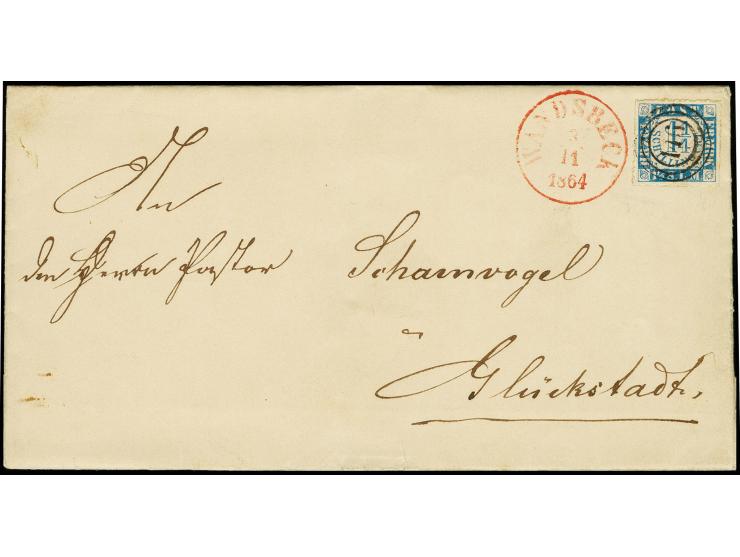 WANDSBECK
3
11
1864
An
den Herrn Pastor Schamvogel
Glückstadt.